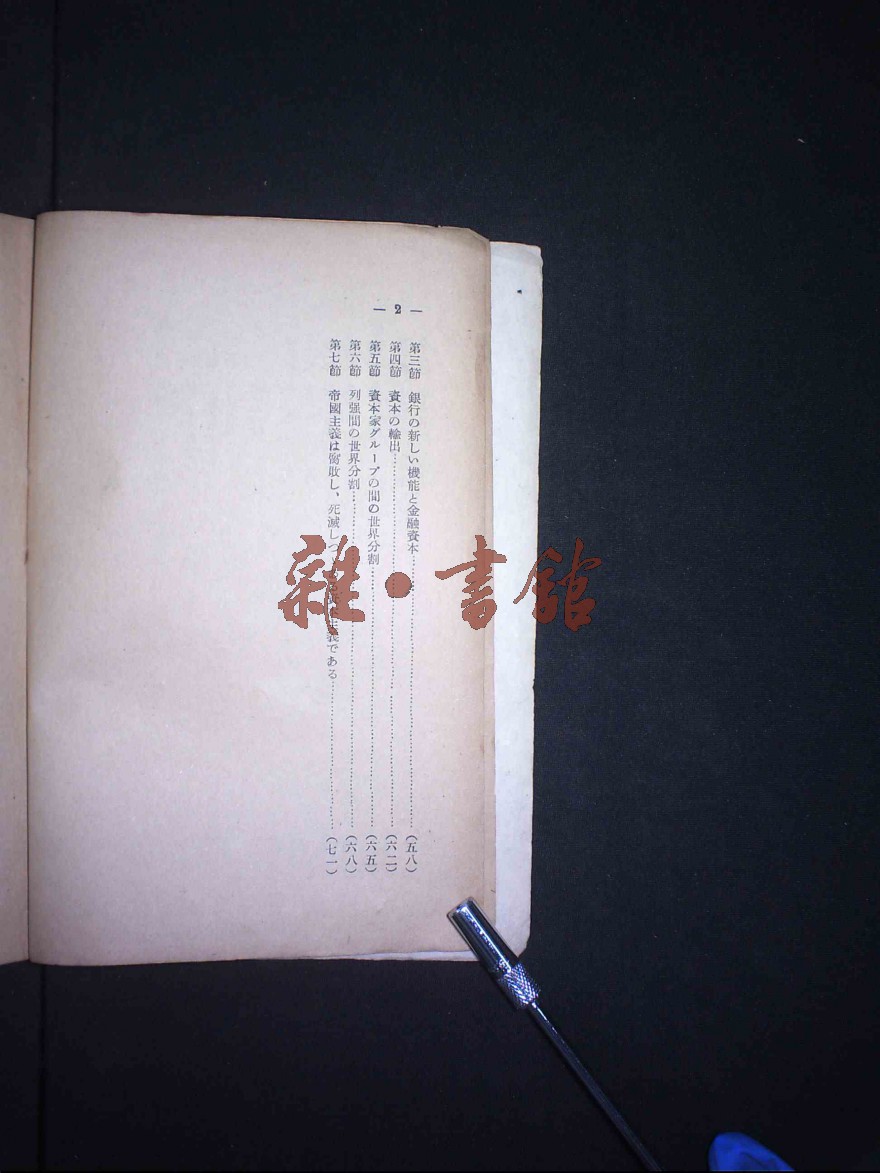 — 2 —
第三節 銀行の新しい機能と金融資本……(五八)
第四節 資本の輸出……(六二)
第五節 資本家グループの間の世界分割……(六五)
第六節 列强間の世界分割……(六八)
第七節 帝國主義は腐敗し、死滅しつ 義である……(七一)
雜·書館